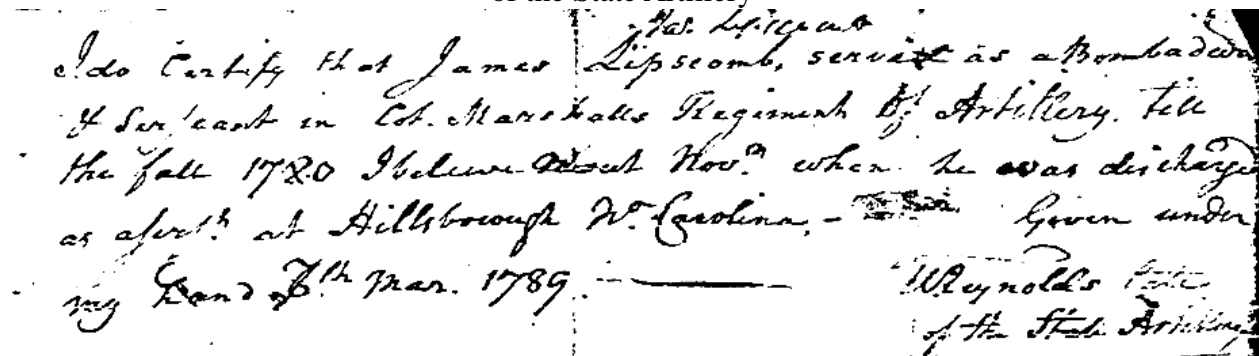 of the State Artillery
Jas. Lipscomb
I do Certify that James Lipscomb, servd as a Bombadeer
& Serjeant in Col. Marshalls Regiment of Artillery. till
the fall 1780 I beleive about Novr. when he was discharged
as a at Hillsborough No. Carolina, - Given under
my hand 7th Mar. 1789.
WReynolds late
of the State Artillery